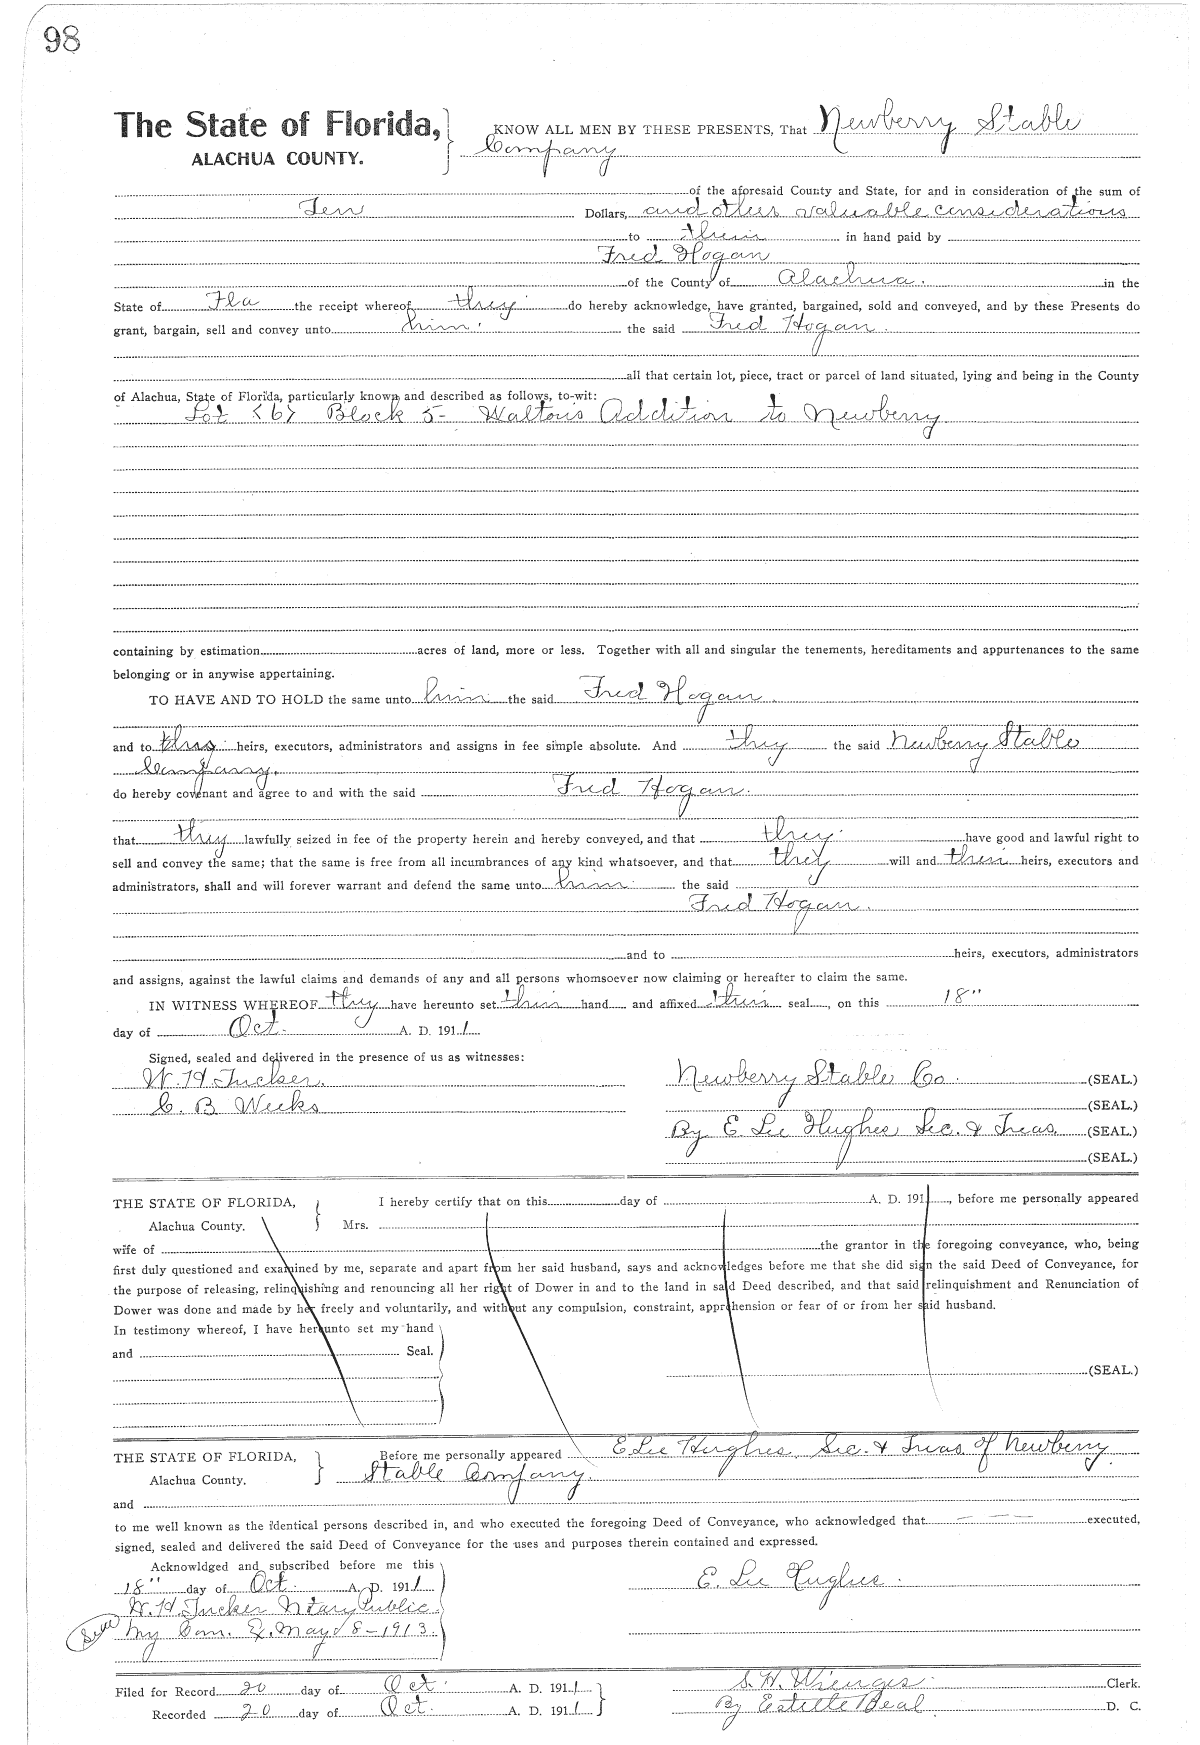 98
The State of Florida, KNOW ALL MEN BY THESE PRESENTS, That Newberry Stable
ALACHUA COUNTY. Company
of the aforesaid County and State, for and in consideration of the sum of
Ten Dollars, and other valuable considerations
to them in hand paid by
Fred Hogan
of the County of Alachua. in the
State of Fla the receipt whereof they do hereby acknowledge, have granted, bargained, sold and conveyed, and by these Presents do
grant, bargain, sell and convey unto him. the said Fred Hogan.
all that certain lot, piece, tract or parcel of land situated, lying and being in the County
of Alachua, State of Florida, particularly known and described as follows, to-wit:
Lot <6> Block 5- Waltons Addition to Newberry
containing by estimation acres of land, more or less. Together with all and singular the tenements, hereditaments and appurtenances to the same
belonging or in anywise appertaining.
TO HAVE AND TO HOLD the same unto him the said Fred Hogan
and to heirs, executors, administrators and assigns in fee simple absolute. And they the said Newberry Stable
Company.
do hereby covenant and agree to and with the said Fred Hogan.
that they lawfully seized in fee of the property herein and hereby conveyed, and that they have good and lawful right to
sell and convey the same; that the same is free from all incumbrances of any kind whatsoever, and that they will and their heirs, executors and
administrators, shall and will forever warrant and defend the same unto him the said
Fred Hogan.
and to heirs, executors, administrators
and assigns, against the lawful claims and demands of any and all persons whomsoever now claiming or hereafter to claim the same.
IN WITNESS WHEREOF they have hereunto set their hand and affixed their seal, on this 18"
day of Oct. A. D. 1911
Signed, sealed and delivered in the presence of us as witnesses:
W. H. Tucker. Newberry Stable Co. (SEAL.)
C. B. Weeks (SEAL.)
By E Lee Hughes Sec. & Treas. (SEAL.)
(SEAL.)
THE STATE OF FLORIDA, I hereby certify that on this day of A. D. 191 , before me personally appeared
Alachua County. Mrs.
wife of the grantor in the foregoing conveyance, who, being
first duly questioned and examined by me, separate and apart from her said husband, says and acknowledges before me that she did sign the said Deed of Conveyance, for
the purpose of releasing, relinquishing and renouncing all her right of Dower in and to the land in said Deed described, and that said relinquishment and Renunciation of
Dower was done and made by her freely and voluntarily, and without any compulsion, constraint, apprehension or fear of or from her said husband.
In testimony whereof, I have hereunto set my hand
and Seal.
(SEAL.)
THE STATE OF FLORIDA, Before me personally appeared E Lee Hughes, Sec. & Treas of Newberry
Alachua County. Stable Company.
and
to me well known as the identical persons described in, and who executed the foregoing Deed of Conveyance, who acknowledged that executed,
signed, sealed and delivered the said Deed of Conveyance for the uses and purposes therein contained and expressed.
Acknowldged and subscribed before me this
18" day of Oct. A. D. 1911 E. Lee Hughes.
W. H. Tucker Notary Public
Seal My Com. Ex. May 18-1913.
Filed for Record 20 day of Oct. A. D. 1911 S. H. Wienges Clerk.
Recorded 20 day of Oct. A. D. 1911 By Estelle Beal D. C.